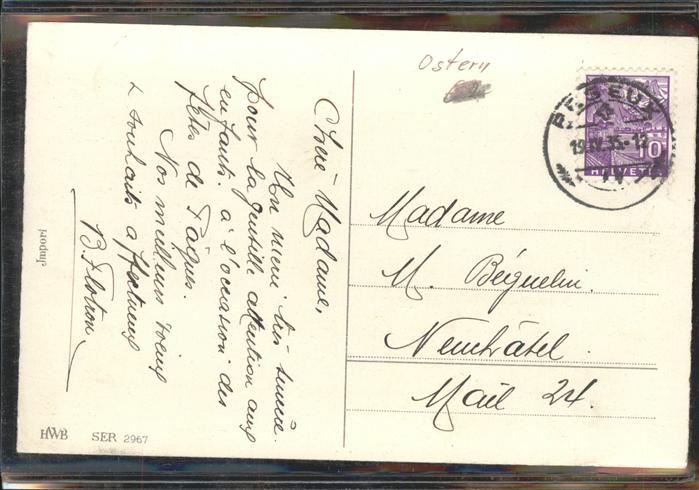 Ostern
PESEUX
19.IV.35-12
10
HELVETIA
Chère Madame,
Un merci très sincère
pour la gentille attention aux
enfants à l'occasion des
fêtes de Pâques.
Nos meilleurs voeux
& souhaits affectueux
B. Flotron
Madame
M. Béguelin.
Neuchâtel.
Mail 24.
Import
HWB SER 2967